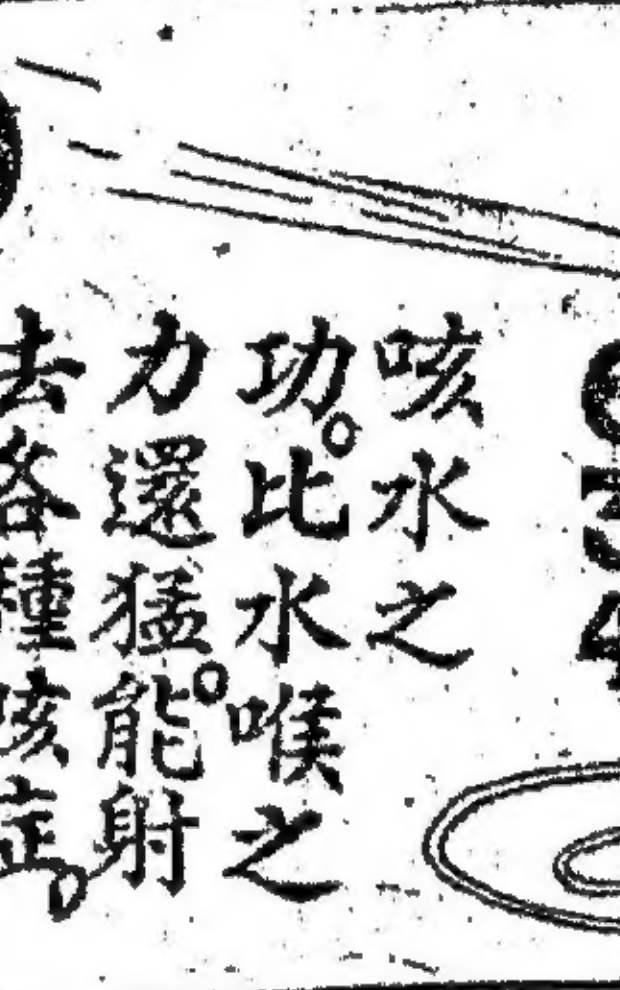 咳水之
功。比水喉之
力還猛。能射
去各種咳症。